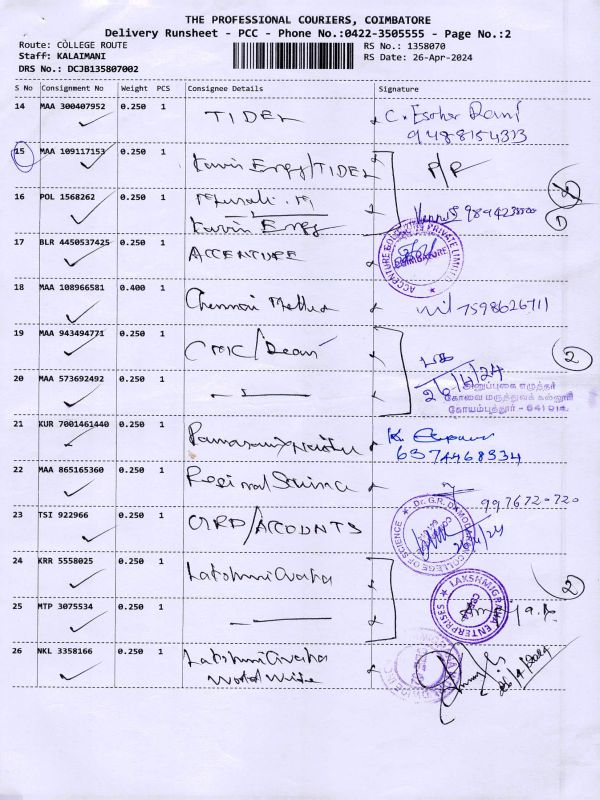 THE PROFESSIONAL COURIERS, COIMBATORE
Delivery Runsheet - PCC - Phone No.:0422-3505555 - Page No.:2
Route: COLLEGE ROUTE
RS No.: 1358070
Staff: KALAIMANI
RS Date: 26-Apr-2024
DRS No.: DCJB135807002
S No Consignment No Weight PCS Consignee Details Signature
14 MAA 300407952 0.250 1 TIDEL C. Esther Rani
9488154323
15 MAA 109117153 0.250 1 Kavin Engg/TIDEL P/R
16 POL 1568262 0.250 1 Murali. M
Kavin Engg
17 BLR 4450537425 0.250 1 ACCENTURE
ACCENTURE SOLUTIONS PRIVATE LIMITED
COIMBATORE
18 MAA 108966581 0.400 1 Chennai Mettur 7598626711
19 MAA 943494771 0.250 1 CMC/Dean 2
26/4/24
20 MAA 573692492 0.250 1
அனுப்புகை எழுத்தர்
கோவை மருத்துவக் கல்லூரி
கோயம்புத்தூர் - 641 014.
21 KUR 7001461440 0.250 1
6374468334
22 MAA 865165360 0.250 1 Regional Science
9976720720
23 TSI 922966 0.250 1 GRD/ACCOUNTS
COLLEGE OF SCIENCE
24 KRR 5558025 0.250 1 Lakshmi Graha 2
25 MTP 3075534 0.250 1
LAKSHMIGRAHA ENTERPRISES
26 NKL 3358166 0.250 1 Lakshmi Graha
World Wide
26/4/2024